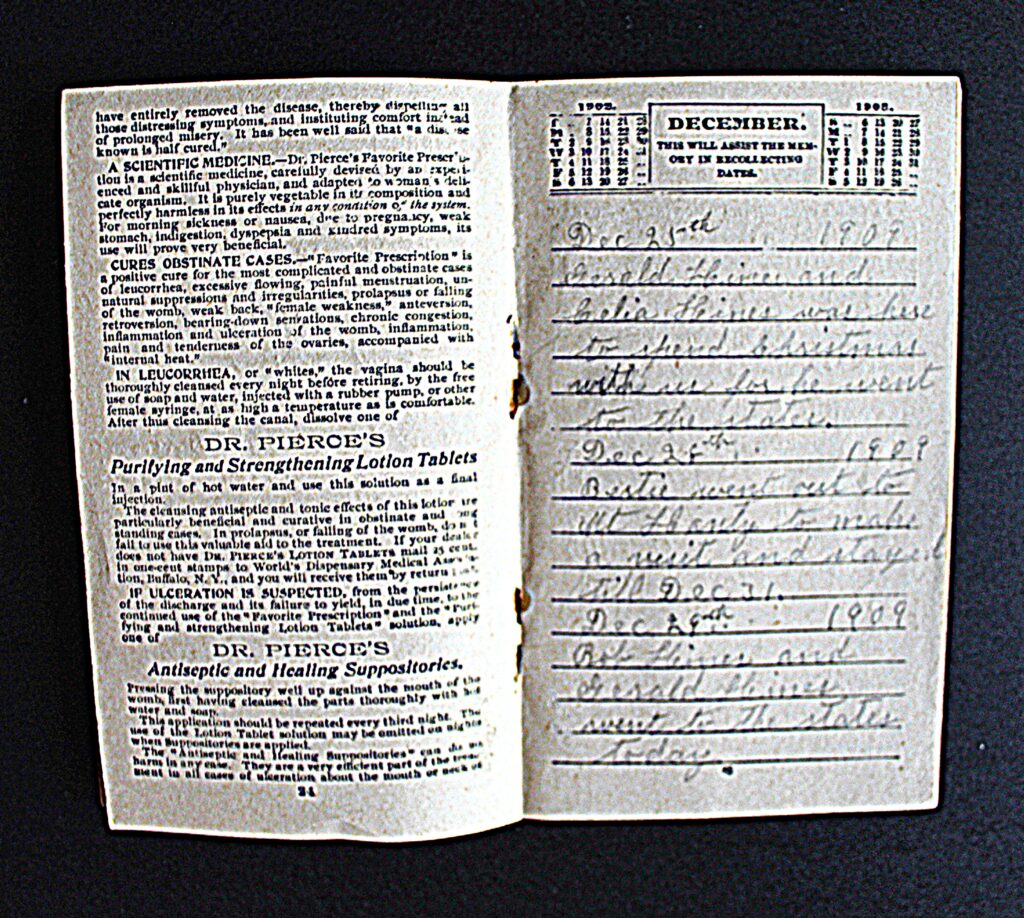 have entirely removed the disease, thereby dispelling all
those distressing symptoms, and instituting comfort instead
of prolonged misery. It has been well said that "a disease
known is half cured."
A SCIENTIFIC MEDICINE.—Dr. Pierce's Favorite Prescrip-
tion is a scientific medicine, carefully devised by an experi-
enced and skillful physician, and adapted to woman's deli-
cate organism. It is purely vegetable in its composition and
perfectly harmless in its effects in any condition of the system.
For morning sickness or nausea, due to pregnancy, weak
stomach, indigestion, dyspepsia and kindred symptoms, its
use will prove very beneficial.
CURES OBSTINATE CASES.—"Favorite Prescription" is
a positive cure for the most complicated and obstinate cases
of leucorrhea, excessive flowing, painful menstruation, un-
natural suppressions and irregularities, prolapsus or falling
of the womb, weak back, "female weakness," anteversion,
retroversion, bearing-down sensations, chronic congestion,
inflammation and ulceration of the womb, inflammation,
pain and tenderness of the ovaries, accompanied with
"internal heat."
IN LEUCORRHEA, or "whites," the vagina should be
thoroughly cleansed every night before retiring, by the free
use of soap and water, injected with a rubber pump, or other
female syringe, at as high a temperature as is comfortable.
After thus cleansing the canal, dissolve one of
DR. PIERCE'S
Purifying and Strengthening Lotion Tablets
In a pint of hot water and use this solution as a final
injection.
The cleansing antiseptic and tonic effects of this lotion are
particularly beneficial and curative in obstinate and long
standing cases. In prolapsus, or falling of the womb, don't
fail to use this valuable aid to the treatment. If your dealer
does not have DR. PIERCE'S LOTION TABLETS mail 25 cents
in one-cent stamps to World's Dispensary Medical Associa-
tion, Buffalo, N. Y., and you will receive them by return mail.
IF ULCERATION IS SUSPECTED, from the persistence
of the discharge and its failure to yield, in due time, to the
continued use of the "Favorite Prescription" and the "Puri-
fying and strengthening Lotion Tablets" solution, apply
one of
DR. PIERCE'S
Antiseptic and Healing Suppositories.
Pressing the suppository well up against the mouth of the
womb, first having cleansed the parts thoroughly with hot
water and soap.
This application should be repeated every third night. The
use of the Lotion Tablet solution may be omitted on nights
when Suppositories are applied.
The "Antiseptic and Healing Suppositories" can do no
harm in any case. They are a very efficient part of the treat-
ment in all cases of ulceration about the mouth or neck of
DECEMBER.
THIS WILL ASSIST THE MEM-
ORY IN RECOLLECTING
DATES.
Dec 25th 1909
Gerald Hines and
Celia Hines was here
to spend Christmas
with us for he went
to the states.
Dec 1909
Bertie went out to
Mt Hardy to make
a visit and stayed
till Dec 31.
Dec 29th. 1909
Bob Hines and
Gerald Hines
went to the states
today.